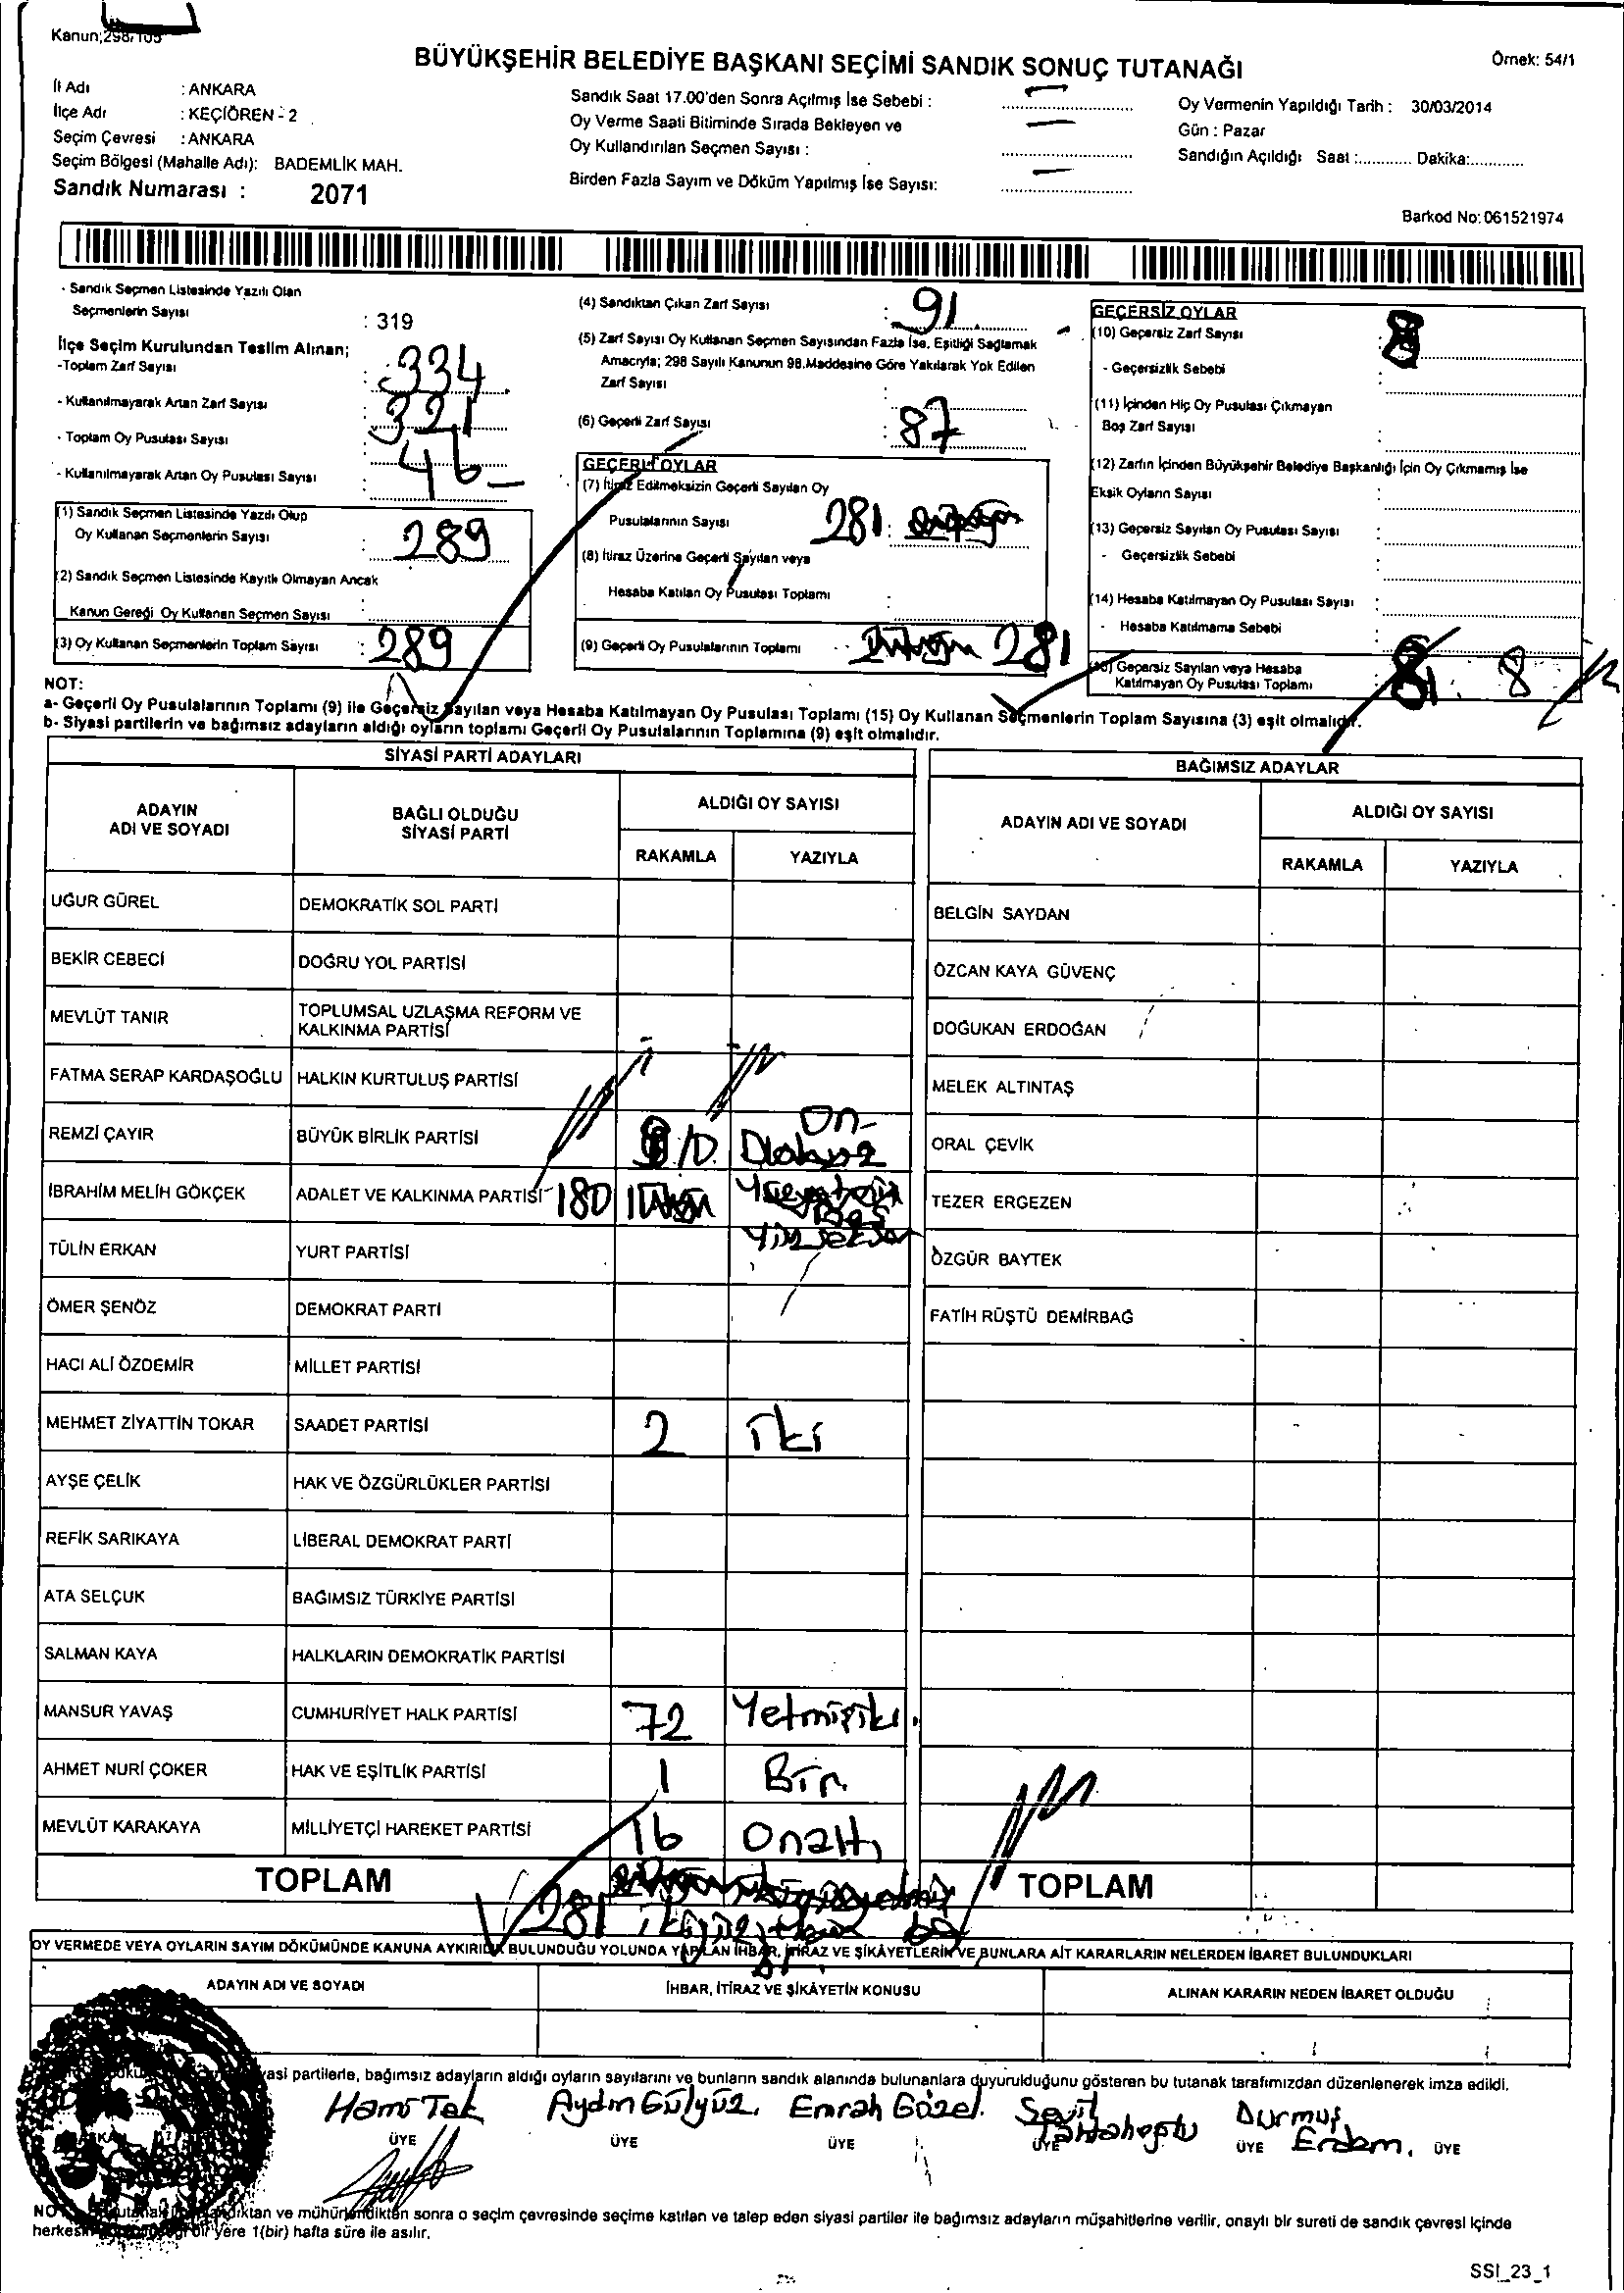 Kanun;298/105
BÜYÜKŞEHİR BELEDİYE BAŞKANI SEÇİMİ SANDIK SONUÇ TUTANAĞI
Örnek: 54/1
İl Adı : ANKARA
İlçe Adı : KEÇİÖREN - 2
Seçim Çevresi : ANKARA
Seçim Bölgesi (Mahalle Adı): BADEMLİK MAH.
Sandık Numarası : 2071
Sandık Saat 17.00'den Sonra Açılmış İse Sebebi :
Oy Verme Saati Bitiminde Sırada Bekleyen ve
Oy Kullandırılan Seçmen Sayısı :
Birden Fazla Sayım ve Döküm Yapılmış İse Sayısı:
Oy Vermenin Yapıldığı Tarih : 30/03/2014
Gün : Pazar
Sandığın Açıldığı Saat :............ Dakika:............
Barkod No: 061521974
- Sandık Seçmen Listesinde Yazılı Olan
Seçmenlerin Sayısı : 319
İlçe Seçim Kurulundan Teslim Alınan;
-Toplam Zarf Sayısı : 334
- Kullanılmayarak Artan Zarf Sayısı
- Toplam Oy Pusulası Sayısı : 321
- Kullanılmayarak Artan Oy Pusulası Sayısı : 46
(1) Sandık Seçmen Listesinde Yazılı Olup
Oy Kullanan Seçmenlerin Sayısı : 289
(2) Sandık Seçmen Listesinde Kayıtlı Olmayan Ancak
Kanun Gereği Oy Kullanan Seçmen Sayısı :
(3) Oy Kullanan Seçmenlerin Toplam Sayısı : 289
(4) Sandıktan Çıkan Zarf Sayısı : 91
(5) Zarf Sayısı Oy Kullanan Seçmen Sayısından Fazla İse, Eşitliği Sağlamak
Amacıyla; 298 Sayılı Kanunun 98.Maddesine Göre Yakılarak Yok Edilen
Zarf Sayısı :
(6) Geçerli Zarf Sayısı : 87
GEÇERLİ OYLAR
(7) İtiraz Edilmeksizin Geçerli Sayılan Oy
Pusulalarının Sayısı 281
(8) İtiraz Üzerine Geçerli Sayılan veya
Hesaba Katılan Oy Pusulası Toplamı :
(9) Geçerli Oy Pusulalarının Toplamı 281
GEÇERSİZ OYLAR
(10) Geçersiz Zarf Sayısı 8
- Geçersizlik Sebebi :
(11) İçinden Hiç Oy Pusulası Çıkmayan
Boş Zarf Sayısı :
(12) Zarfın İçinden Büyükşehir Belediye Başkanlığı İçin Oy Çıkmamış İse
Eksik Oyların Sayısı :
(13) Geçersiz Sayılan Oy Pusulası Sayısı :
- Geçersizlik Sebebi
(14) Hesaba Katılmayan Oy Pusulası Sayısı :
- Hesaba Katılmama Sebebi :
(15) Geçersiz Sayılan veya Hesaba
Katılmayan Oy Pusulası Toplamı 8
NOT:
a- Geçerli Oy Pusulalarının Toplamı (9) ile Geçersiz Sayılan veya Hesaba Katılmayan Oy Pusulası Toplamı (15) Oy Kullanan Seçmenlerin Toplam Sayısına (3) eşit olmalıdır.
b- Siyasi partilerin ve bağımsız adayların aldığı oyların toplamı Geçerli Oy Pusulalarının Toplamına (9) eşit olmalıdır.
SİYASİ PARTİ ADAYLARI
ADAYIN
ADI VE SOYADI
BAĞLI OLDUĞU
SİYASİ PARTİ
ALDIĞI OY SAYISI
RAKAMLA YAZIYLA
UĞUR GÜREL DEMOKRATİK SOL PARTİ
BEKİR CEBECİ DOĞRU YOL PARTİSİ
MEVLÜT TANIR TOPLUMSAL UZLAŞMA REFORM VE
KALKINMA PARTİSİ
FATMA SERAP KARDAŞOĞLU HALKIN KURTULUŞ PARTİSİ
REMZİ ÇAYIR BÜYÜK BİRLİK PARTİSİ 10 On
İBRAHİM MELİH GÖKÇEK ADALET VE KALKINMA PARTİSİ 180
Yüzseksen
TÜLİN ERKAN YURT PARTİSİ
ÖMER ŞENÖZ DEMOKRAT PARTİ
HACI ALİ ÖZDEMİR MİLLET PARTİSİ
MEHMET ZİYATTİN TOKAR SAADET PARTİSİ 2 İki
AYŞE ÇELİK HAK VE ÖZGÜRLÜKLER PARTİSİ
REFİK SARIKAYA LİBERAL DEMOKRAT PARTİ
ATA SELÇUK BAĞIMSIZ TÜRKİYE PARTİSİ
SALMAN KAYA HALKLARIN DEMOKRATİK PARTİSİ
MANSUR YAVAŞ CUMHURİYET HALK PARTİSİ 72 Yetmişiki
AHMET NURİ ÇOKER HAK VE EŞİTLİK PARTİSİ 1 Bir
MEVLÜT KARAKAYA MİLLİYETÇİ HAREKET PARTİSİ 16 Onaltı
TOPLAM
281
BAĞIMSIZ ADAYLAR
ADAYIN ADI VE SOYADI
ALDIĞI OY SAYISI
RAKAMLA YAZIYLA
BELGİN SAYDAN
ÖZCAN KAYA GÜVENÇ
DOĞUKAN ERDOĞAN
MELEK ALTINTAŞ
ORAL ÇEVİK
TEZER ERGEZEN
ÖZGÜR BAYTEK
FATİH RÜŞTÜ DEMİRBAĞ
TOPLAM
OY VERMEDE VEYA OYLARIN SAYIM DÖKÜMÜNDE KANUNA AYKIRILIK BULUNDUĞU YOLUNDA YAPILAN İHBAR, İTİRAZ VE ŞİKÂYETLERİN VE BUNLARA AİT KARARLARIN NELERDEN İBARET BULUNDUKLARI
ADAYIN ADI VE SOYADI İHBAR, İTİRAZ VE ŞİKÂYETİN KONUSU ALINAN KARARIN NEDEN İBARET OLDUĞU
yasi partilerle, bağımsız adayların aldığı oyların sayılarını ve bunların sandık alanında bulunanlara duyurulduğunu gösteren bu tutanak tarafımızdan düzenlenerek imza edildi.
Hami Tek Aydın Gülyüz. Emrah Güzel. Sevil Durmuş
Erdem.
ÜYE ÜYE ÜYE ÜYE ÜYE ÜYE
ve mühürlendikten sonra o seçim çevresinde seçime katılan ve talep eden siyasi partiler ile bağımsız adayların müşahitlerine verilir, onaylı bir sureti de sandık çevresi içinde
bir yere 1(bir) hafta süre ile asılır.
SSI_23_1